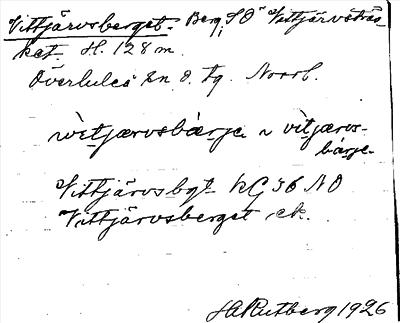 Vittjärvsberget. Berg, SO Vittjärvsträs-
ket. H. 128 m.
Överluleå sn o. tg. Norrb.
witjærvsbærje ~ vitjærvs-
bærje
Vittjärvsbgt kG 36 NO
Vittjärvsberget ek.
HARutberg 1926